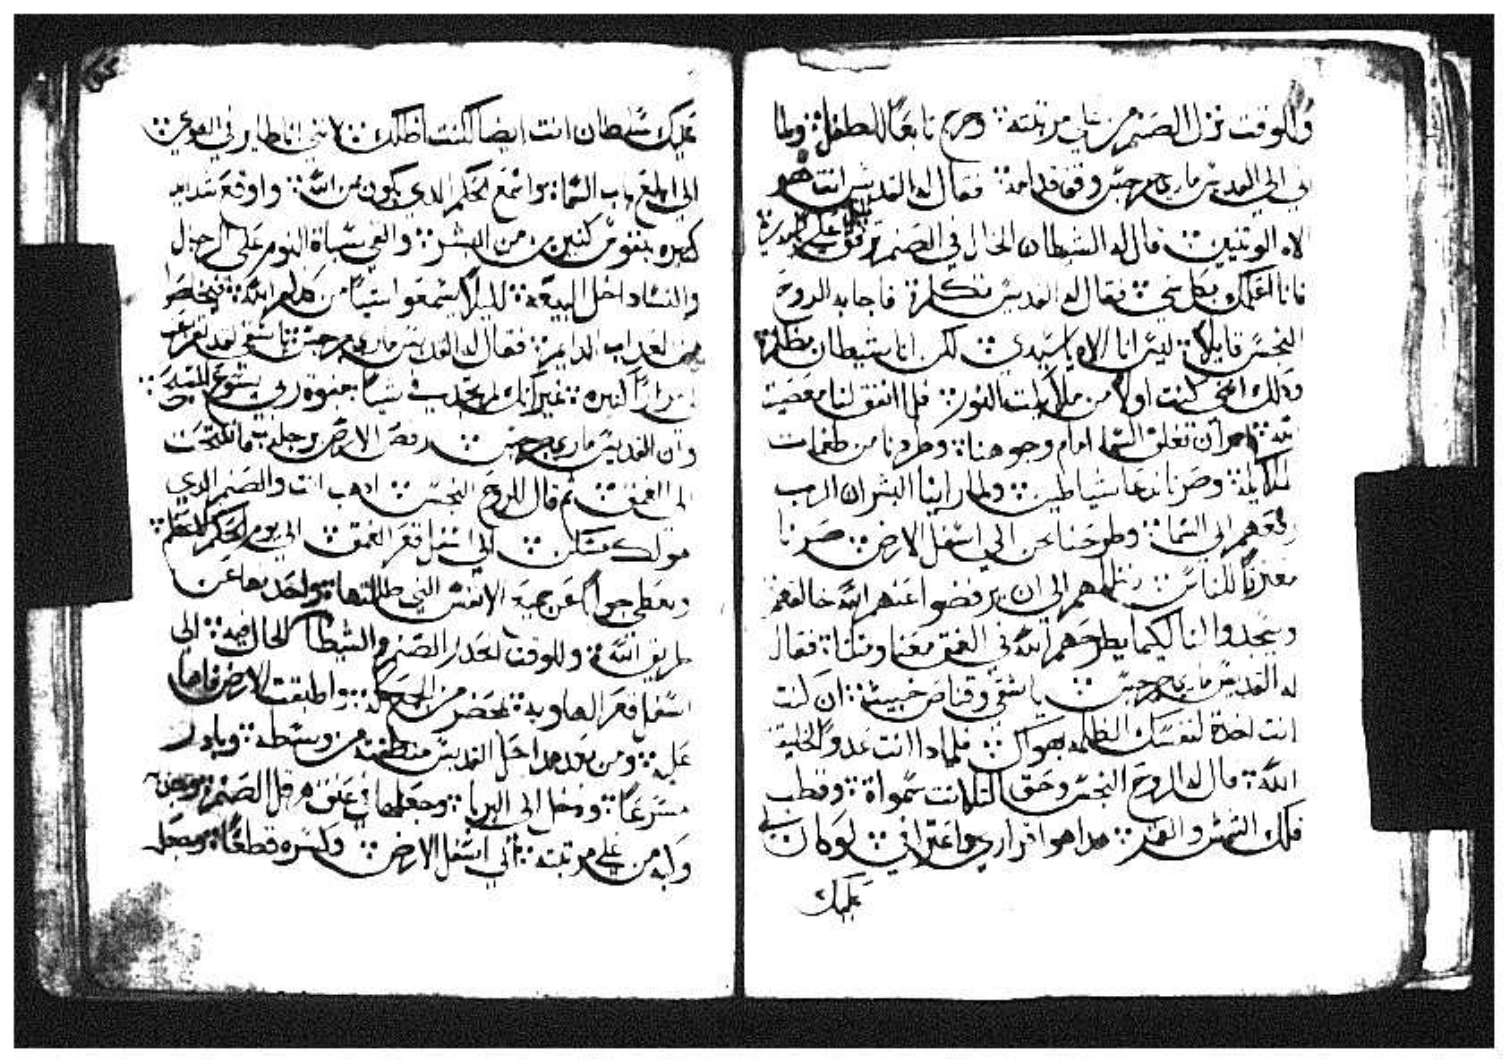 وللوقت نزل الصنم من علي مرتبته وخرج تابعًا للطفل ولما
اتي الي القديس ماري جرجس وقف قدامه فقال له القديس انت هو
الاه الوتنيين قال له الشيطان الحال في الصنم ترفق علي
فانا اعلمك بكل شي فقال له القديس تتكلم فاجابه الروح
النجس قايلا ليس انا الاه يا سيدي لكن انا شيطان
ودلك انني كنت اولا من ملايكت النور فلما اتفق لنا معصيت
الله امر ان تغلق السما امام وجوهنا وطردنا من طغمات
الملايكة وصرنا ندعا شياطين ولما راينا البشر ان الرب
رفعهم الي السما وطرحنا نحن الي اسفل الارض صرنا
للناس الي ان يرفضوا عنهم الله خالقهم
ويسجدوا لنا ليكما يطرحهم الله في العمق معنا ومتلنا فقال
له القديس ماري جرجس يا شقي وقناص خبيث ان كنت
انت اخدة لنفسك الظلمه بهواك فلمادا انت عدو لخليقة
الله قال له الروح النجس وحق التلات سمواة وقطب
فلك الشمس والقمر هدا هو اقراري واعترافي لو كان لي
عليك
عليك سلطان انت ايضا لكنت اظلك لانني انا طاير في الهوي
الي ابلغ باب السما واسمع الحكم الدي يكون من الله واوقع شدايد
كتيره بقوم كتيرين من البشر والقي سباة النوم علي الرجال
والنسا داخل البيعة ليلا يسمعوا اشيا من كلام الله فيخلصوا
من العداب الدايم فقال له القديس ماري جرجس يا شقي لقد
مرارًا كتيره غير انك لم تجد في شيا بقوة ربي يسوع المسيح
وان القديس ماري جرجس رفص الارض برجله فانفتحت
الي العمق تم قال للروح النجس ادهب انت والصنم الدي
هو لك مسكن الي اسفل قعر العمق الي يوم الحكم العظيم
وتعطي جوابًا عن جميع الانفس التي ظللتها واخدتها عن
طريق الله وللوقت انحدر الصنم والشيطان الحال فيه الي
اسفل قعر الهاويه بحضر من الجمع كله واطبقت الارض فاها
عليه ومن بعد هدا حل القديس منطقته من وسطه وبادر
مسرعًا ودخل الي البربا وجعلها في عنق هرقل الصنم
من علي مرتبته الي اسفل الارض وكسره قطعًا